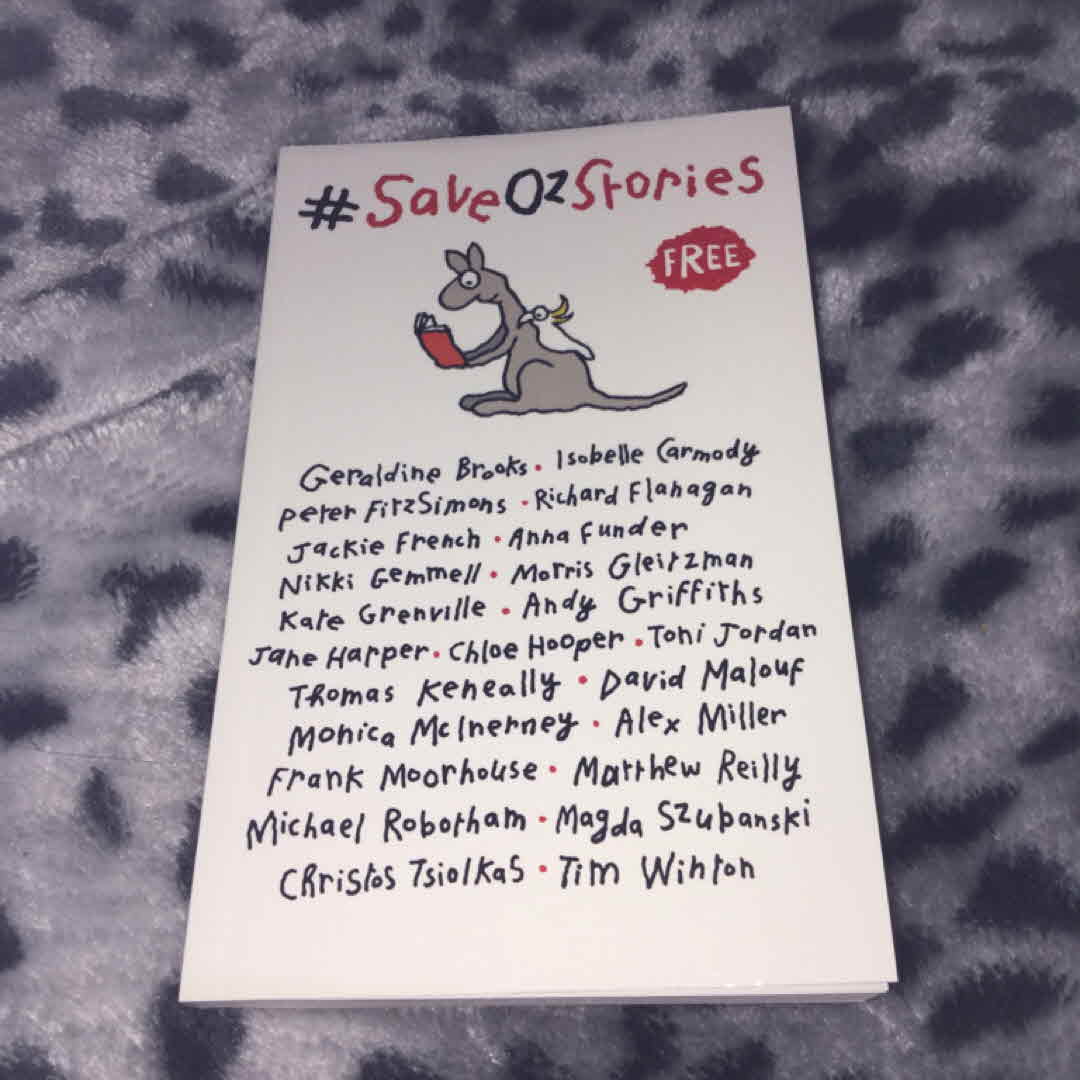 #SaveOzStories
FREE
Geraldine Brooks · Isobelle Carmody
Peter FitzSimons · Richard Flanagan
Jackie French · Anna Funder
Nikki Gemmell · Morris Gleitzman
Kate Grenville · Andy Griffiths
Jane Harper · Chloe Hooper · Toni Jordan
Thomas Keneally · David Malouf
Monica McInerney · Alex Miller
Frank Moorhouse · Matthew Reilly
Michael Robotham · Magda Szubanski
Christos Tsiolkas · Tim Winton